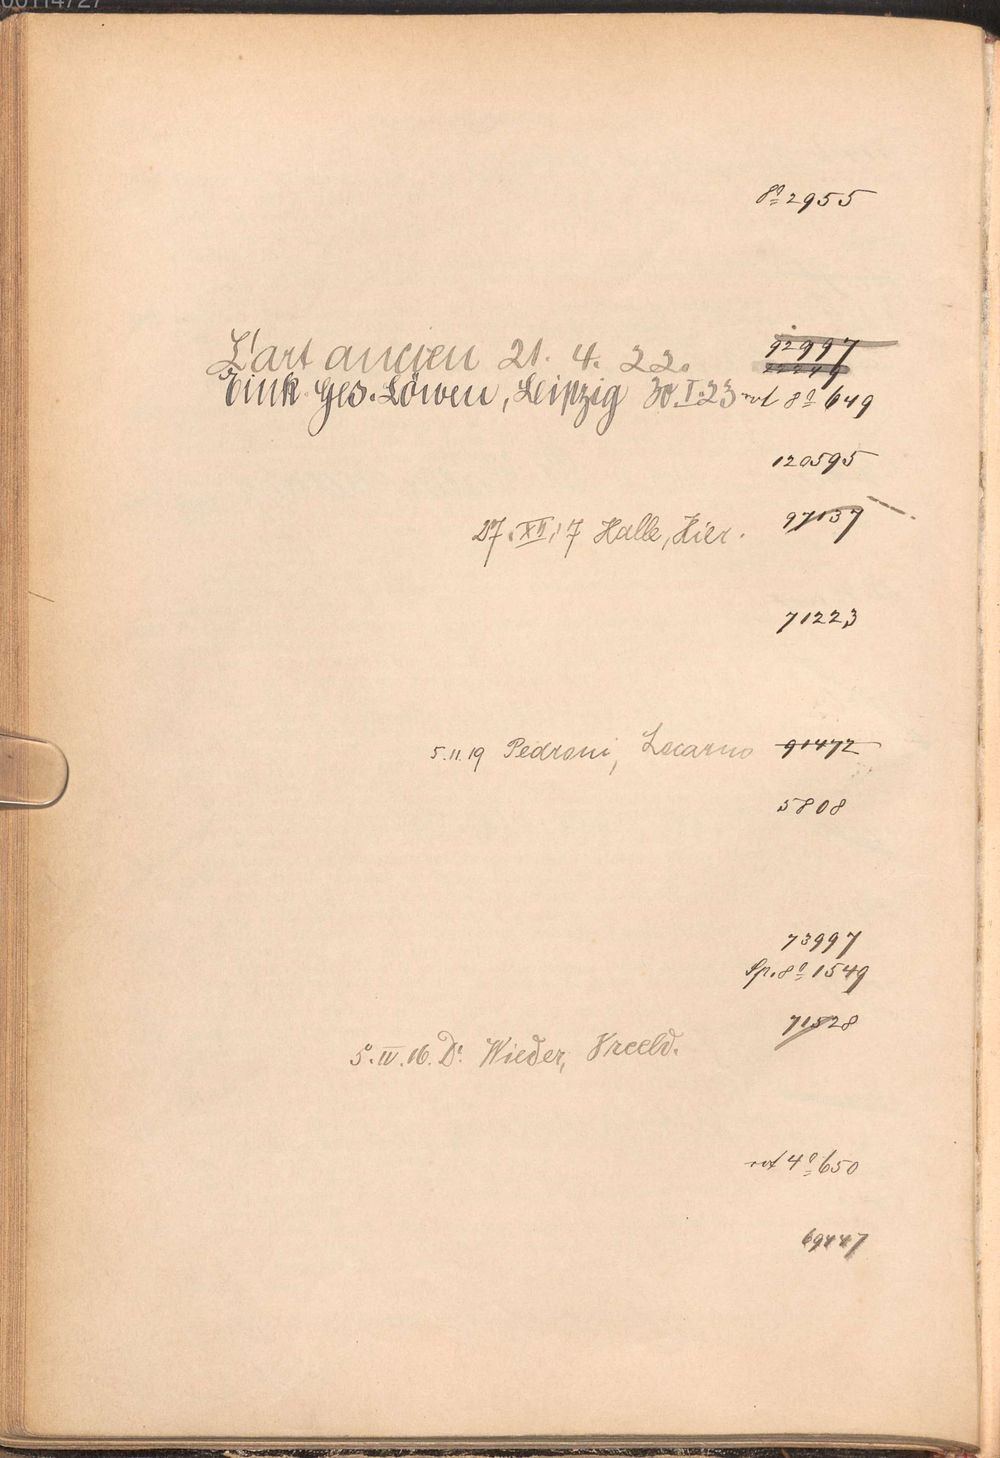 8º 2955
L'art ancien 21. 4. 22. 92997
Eink. Ges. Löwen, Leipzig 30 I. 23 rot 8º 649
120595
27. XII. 17 Halle, Hier. 97137
71223
5. 11. 19 Pedroni, Locarno 91472
5808
73997
Sp. 8º 1549
71528
5. IV. 16. Dr. Wieder,
rot 4º 650
69447